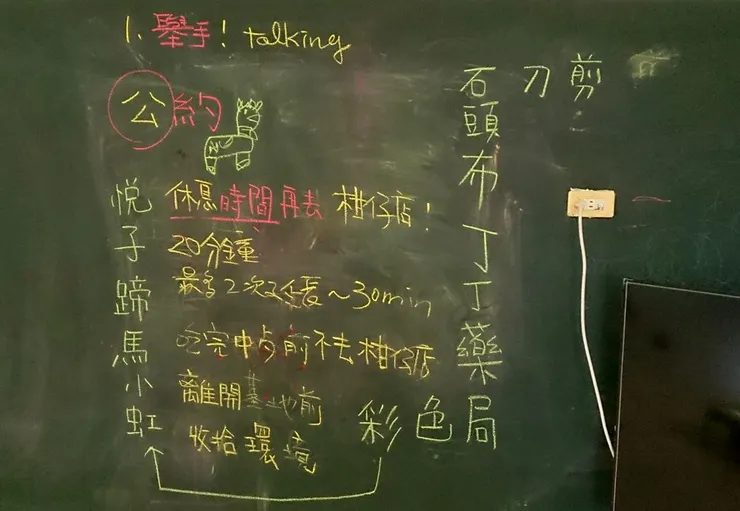 1、舉手! talking
公約
休息時間再去 柑仔店!
20分鐘
最多2次延長~30min
吃完中餐前不去柑仔店
離開基地前
收拾環境
悅子蹄馬小虹
石頭布丁丁藥局
刀剪
彩色